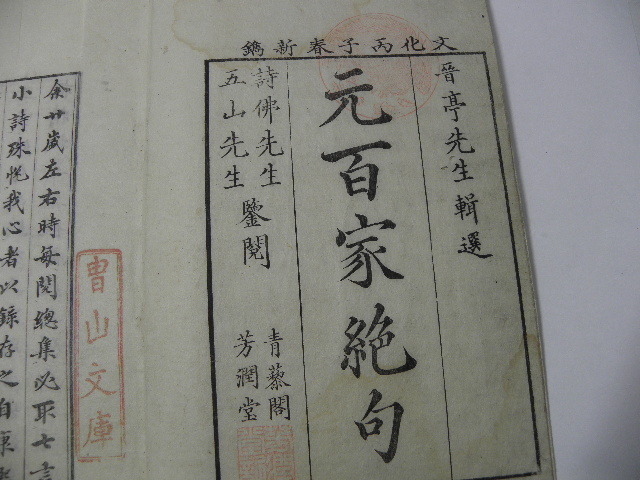 文化丙子春新鐫
晉亭先生輯選
元百家絕句
詩佛先生
五山先生
鑒閱
青藜閣
芳潤堂
曺山文庫
余廿歲左右時每閱總集必取七言
小詩珠悅我心者以錄存之自